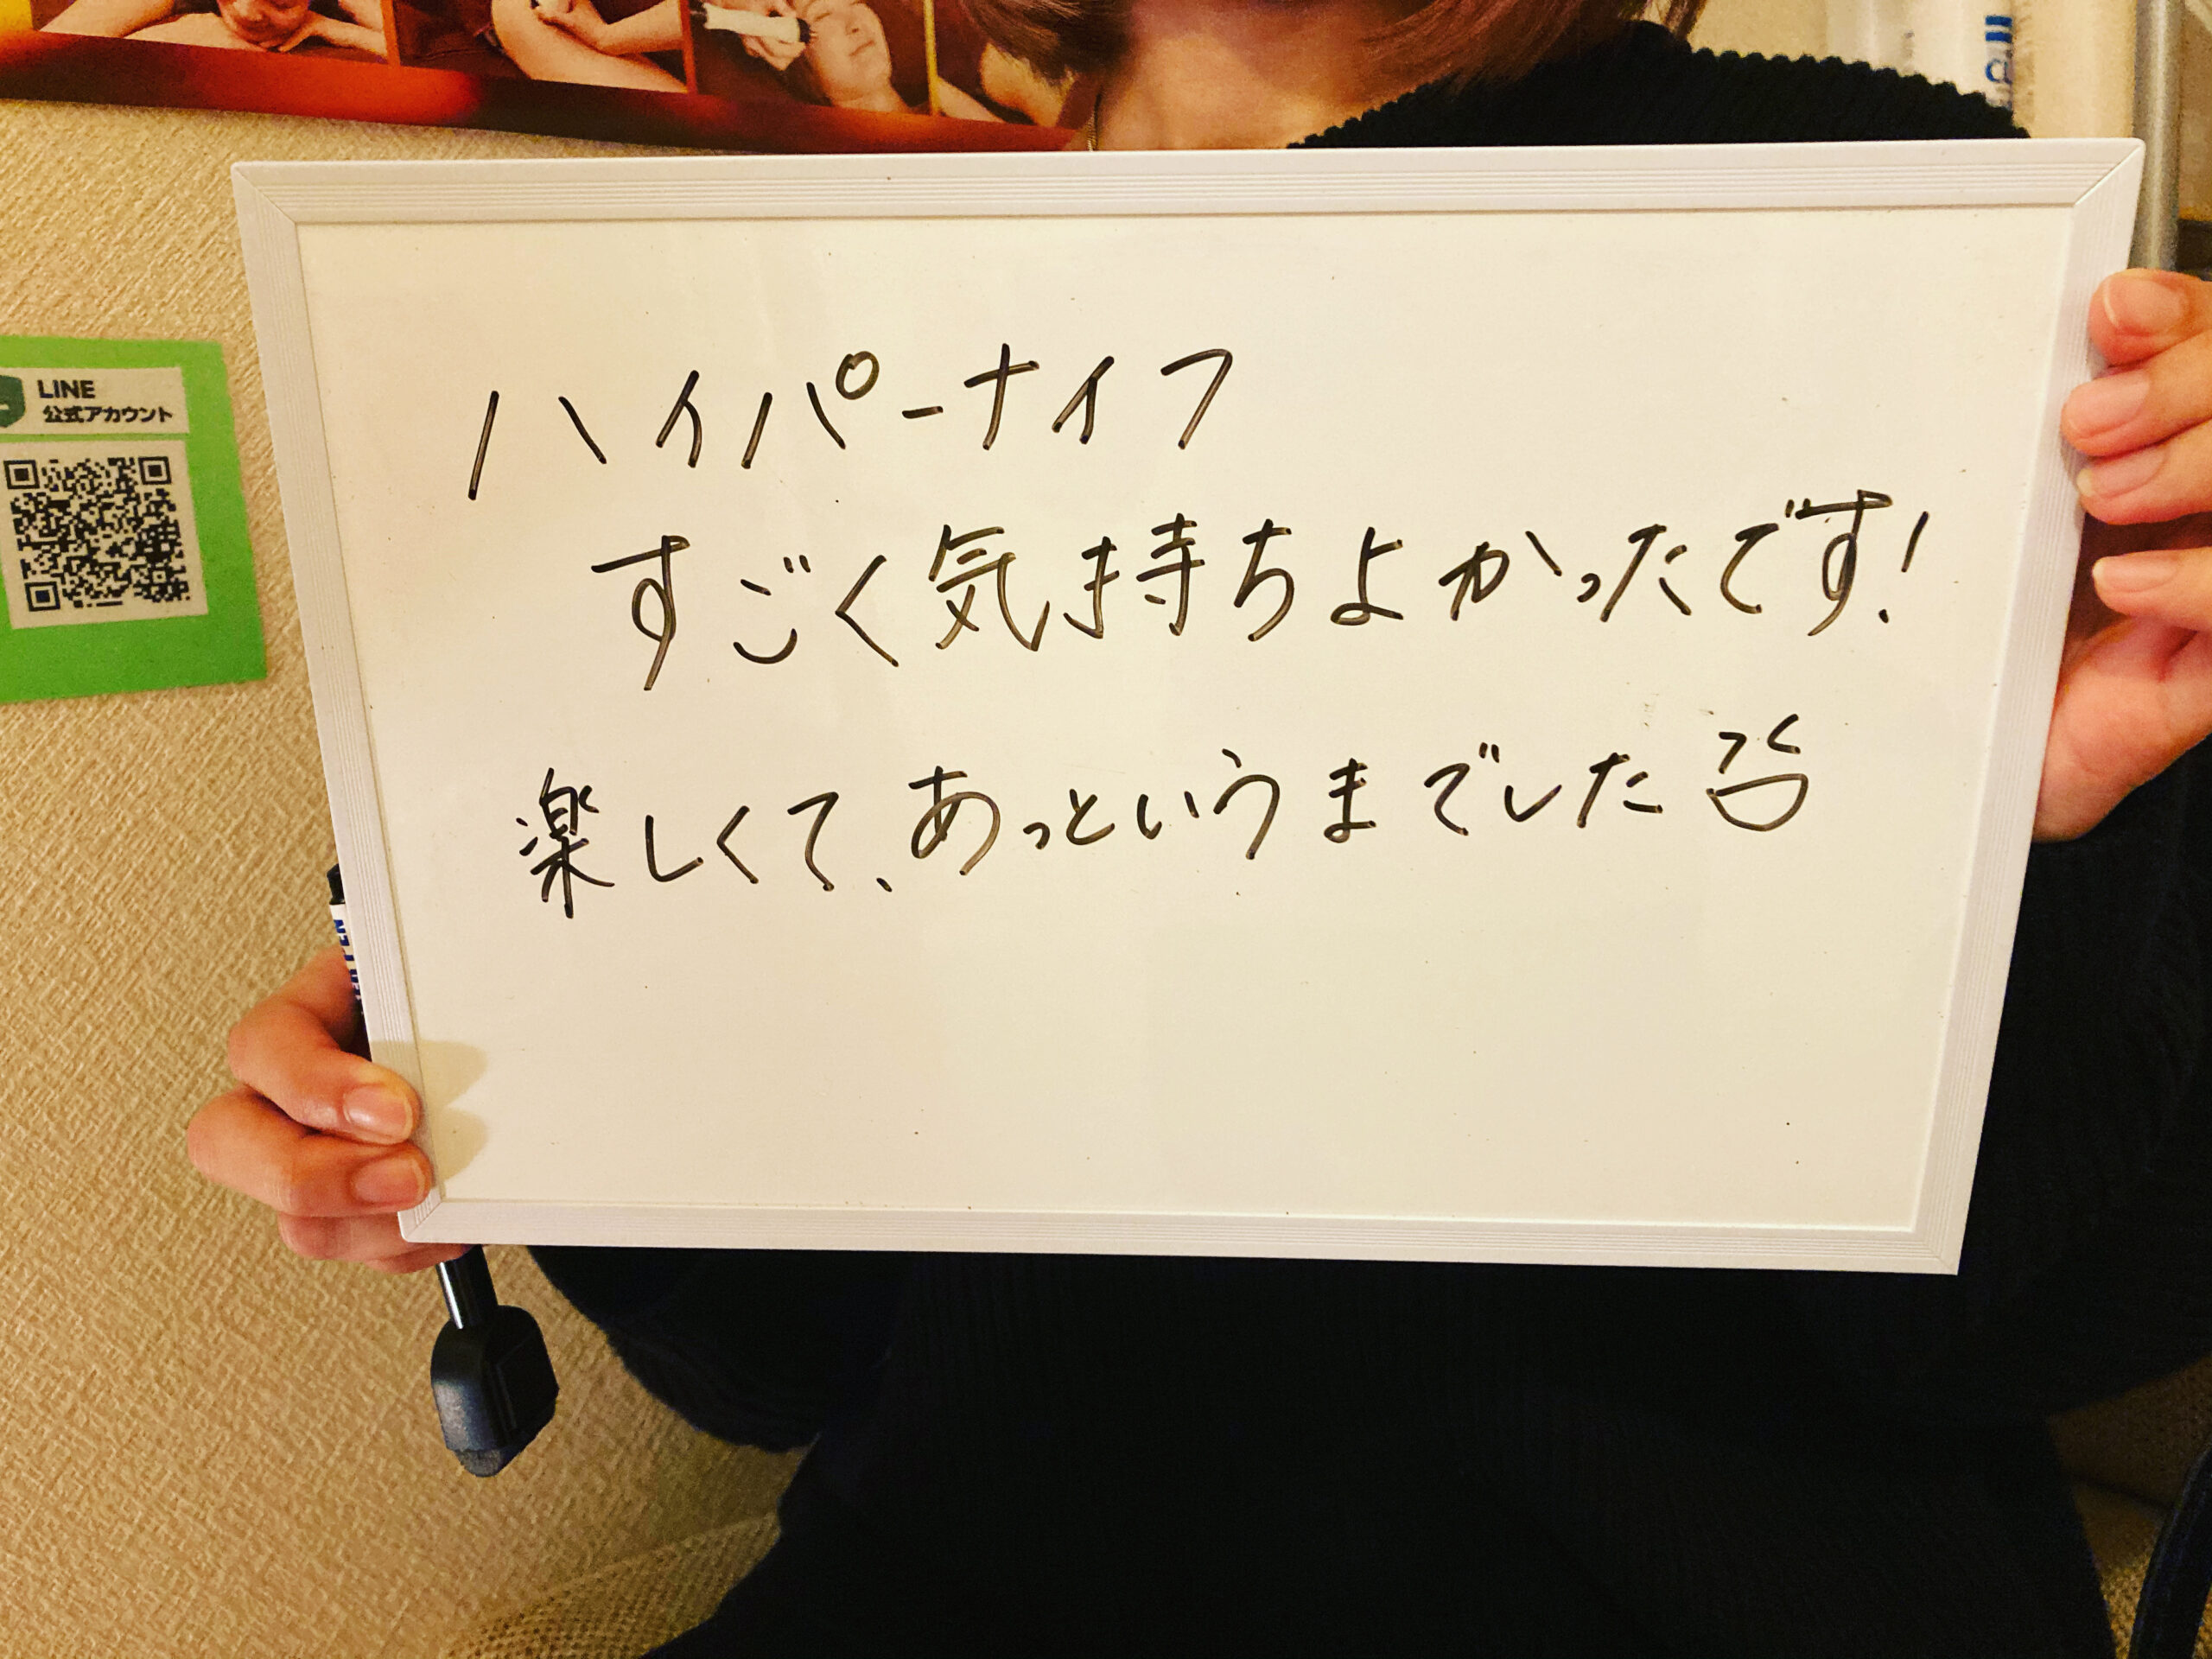 LINE
公式アカウント
ハイパーナイフ
すごく気持ちよかったです!
楽しくて、あっというまでした